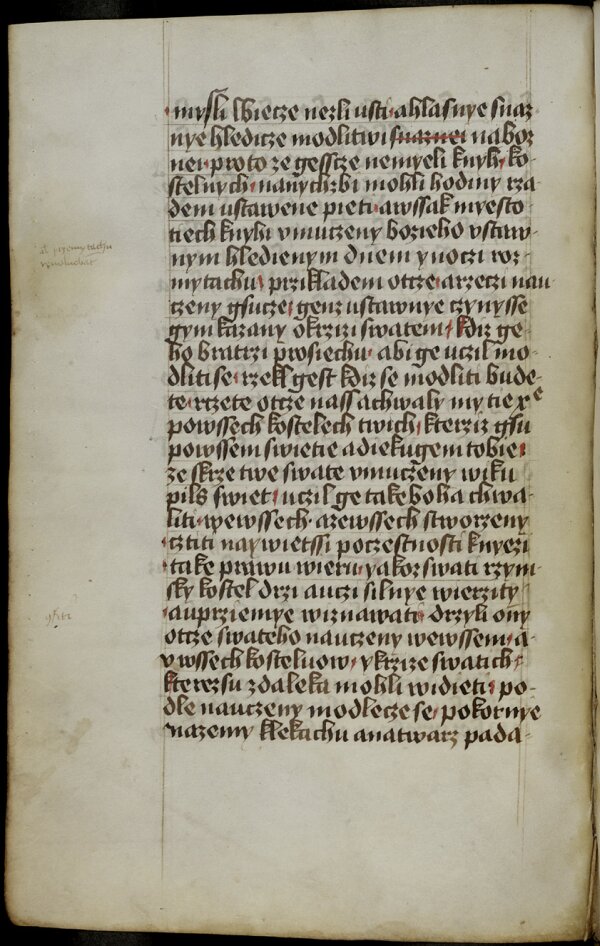 mysli lbiecze nezli usti ahlasnye snaz
nye hledicze modlitwi snaznei naboz
nei proto ze gessecze nemyeli knyh ko
stelnych nanychzbi mohli hodiny rza
dem ustawene pieti awssak myesto
tiech knyh vmuczeny bozieho vstaw
nym hledienym dnem ynoczi roz
mytachu przikladem otcze arzeczi nau
czeny gsucze genz ustawnye czynysse
gym kazany okrzizi swatem kdiz ge
ho bratrzi prosiechu abi ge uczil mo
dliti se rzekl gest kdiz se modliti bude
te rczete otcze nass achwaly my tie xe
powssech kostelech twich kteziz gsu
powssem swietie adiekugem tobie
ze skrze twe swate vmuczeny wiku
pils swiet uczil ge take boha chwa
liti wewssech azewssech stworzeny
cztiti naywietssi poczestnosti knyezi
take prawu wieru yakoz swati rzym
sky kostel drzi auczi silnye wierzity
auprziemye wiznawati drzyli ony
otcze swateho nauczeny wewssem a
vwssech kosteluow ykrzize swatich
kterezsu zdaleka mohli widieti po
dle nauczeny modlecze se pokornye
nazemy klekachu anatwarz pada